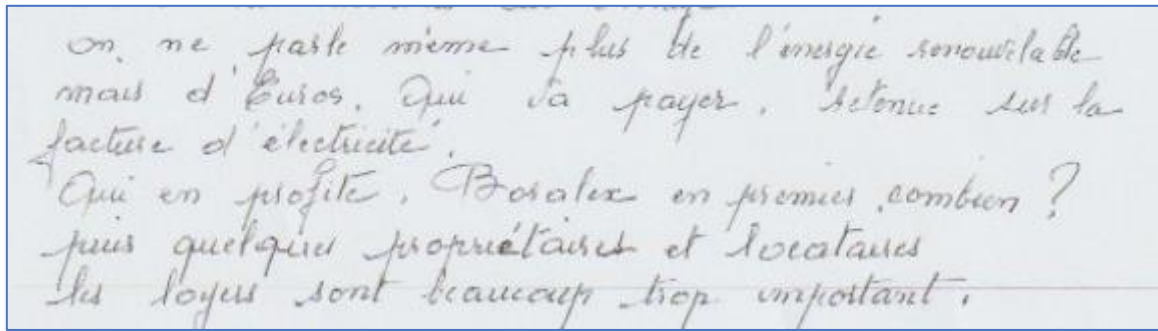 on ne parle même plus de l'énergie renouvelable
mais d'Euros. Qui va payer. retenue sur la
facture d'électricité.
Qui en profite. Boralex en premier combien ?
puis quelques propriétaires et locataires
les loyers sont beaucoup trop important.